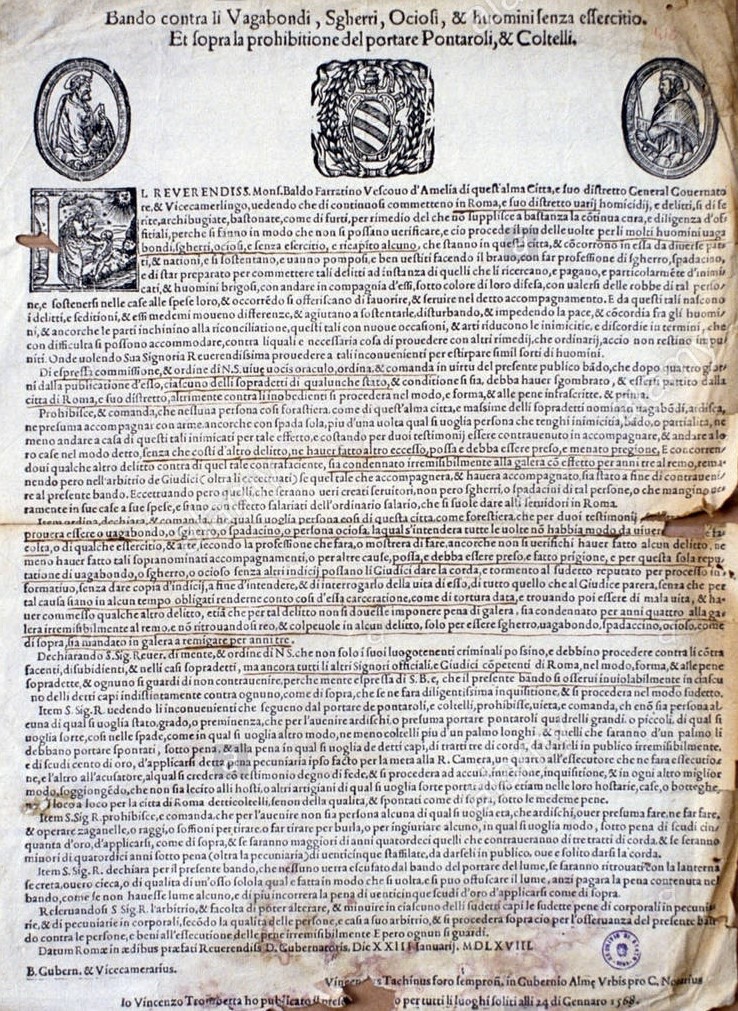 Bando contra li Vagabondi, Sgherri, Ociosi, & huomini senza essercitio.
Et sopra la prohibitione del portare Pontaroli, & Coltelli.
IL REVERENDISS. Mons. Baldo Farratino Vescouo d'Amelia di quest'alma Citta, e suo distretto General Gouernato
re, & Vicecamerlingo, uedendo che di continuo si commetteno in Roma, e suo distretto uarij homicidij, e delitti, si di fe
rite, archibugiate, bastonate, come di furti, per rimedio del che nō supplisce a bastanza la cōtinua cara, e diligenza d'of
fitiali, perche si fanno in modo che non si possano uerificare, e cio procede il piu delle uolte per li molti huomini uaga
bondi, sgherri, ociosi, e senza esercitio, e ricapito alcuno, che stanno in questa citta, & cōcorrono in essa da diuerse par
ti, & nationi, e si sostentano, e uanno pomposi, e ben uestiti facendo il brauo, con far professione di sgherro, spadacino,
e di star preparato per commettere tali delitti ad instanza di quelli che li ricercano, e pagano, e particolarmēte d'inimi
cati, & huomini brigosi, con andare in compagnia d'essi, sotto colore di loro difesa, con ualersi delle robbe di tal perso
ne, e sostenersi nelle case alle spese loro, & occorrēdo si offeriscano di fauorire, & seruire nel detto accompagnamento. E da questi tali nascono
i delitti, e seditioni, & essi medemi moueno differenze, & agiutano a sostentarle, disturbando, & impedendo la pace, & cōcordia fra gli huomi
ni, & ancorche le parti inchinino alla riconciliatione, questi tali con nuoue occasioni, & arti riducono le inimicitie, e discordie in termini, che
con difficulta si possono accommodare, contra li quali e necessaria cosa di prouedere con altri rimedij, che ordinarij, accio non restino impu
niti. Onde uolendo Sua Signoria Reuerendissima prouedere a tali inconuenienti per estirpare simil sorti di huomini.
Di espressa commissione, & ordine di N.S. uiue uocis oraculo, ordina, & comanda in uirtu del presente publico bādo, che dopo quattro gior
ni dalla publicatione d'esso, ciascuno delli sopradetti di qualunche stato, & conditione si sia, debba hauer sgombrato, & essersi partito dalla
citta di Roma, e suo distretto, altrimente contra li inobedienti si procedera nel modo, e forma, & alle pene infrascritte. & prima
Prohibisce, & comanda, che nessuna persona cosi forastiera. come di quest'alma citta, e massime delli sopradetti nominati uagabōdi, ardisca,
ne presuma accompagnar con arme. ancorche con spada sola, piu d'una uolta qual si uoglia persona che tenghi inimicitia, bādo, o partialita, ne
meno andare a casa di questi tali inimicati per tale effetto, e costando per duoi testimonij essere contrauenuto in accompagnare, & andare a lo
ro case nel modo detto, senza che costi d'altro delitto, ne hauer fatto altro eccesso, possa e debba essere preso, e menato pregione, E concorren
doui qualche altro delitto contra di quel tale contrafaciente, sia condennato irremisibilmente alla galera cō effetto per anni tre al remo, rema
nendo pero nell'arbitrio de Giudici (oltra li recettati) se quel tale che accompagnera, & hauera accompagnato, sia stato a fine di contraueni
re al presente bando. Eccettuando pero quelli, che saranno ueri creati seruitori, non pero sgherri, o spadacini di tal persone, o che mangino ue
ramente in sue case a sue spese, e siano con effetto salariati dell'ordinario salario, che si suole dare alli seruidori in Roma.
Item ordina, dechiara, & comanda, che qual si uoglia persona cosi di questa citta, come forestiera, che per duoi testimonij
prouera essere o uagabondo, o sgherro, o spadacino, o persona ociosa, laqual s'intendera tutte le uolte nō habbia modo da uiuere
colta, o di qualche essercitio, & arte, secondo la professione che fara, o mostrera di fare, ancorche non si uerifichi hauer fatto alcun delitto, ne
meno hauer fatto tali sopranominati accompagnamenti, o per altre cause, possa, e debba essere preso, e fatto prigione, e per questa sola repu
tatione di uagabondo, o sgherro, o ocioso senza altri indicij possano li Giudici dare la corda, e tormento al sudetto reputato per processo in-
formatiuo, senza dare copia d'indicij, a fine d'intendere, & di interrogarlo della uita di esso, di tutto quello che al Giudice parera, senza che per
tal causa siano in alcun tempo obligati renderne conto cosi d'essa carceratione, come di tortura data, e trouando poi essere di mala uita, & ha
uer commesso qualche altro delitto, etiā che per tal delitto non si douesse imponere pena di galera, sia condennato per anni quattro alla ga
lera irremisibilmente al remo, e nō ritrouandosi reo, & colpeuole in alcun delitto, solo per essere sgherro, uagabondo, spadaccino, ocioso, come
di sopra, sia mandato in galera a remigare per anni tre.
Dechiarando S. Sig. Reuer. di mente, & ordine di N.S. che non solo i suoi luogotenenti criminali possino, e debbino procedere contra li cōtra
facenti, disubidienti, & nelli casi sopradetti, ma ancora tutti li altri Signori officiali, e Giudici cōpetenti di Roma, nel modo, forma, & alle pene
sopradette, & ognuno si guardi di non contrauenire, perche mente espressa di S.B. e, che il presente bando si osserui inuiolabilmente in ciascu
no delli detti capi indistintamente contro ognuno, come di sopra, che se ne fara diligentissima inquisitione, & si procedera nel modo sudetto.
Item S. Sig R. uedendo li inconuenienti che seguono dal portare de pontaroli, e coltelli, prohibisse, uieta, e comanda, ch enō sia persona al
cuna di qual si uoglia stato, grado, o preminenza, che per l'auenire ardischi, o presuma portare pontaroli quadrelli grandi. o piccoli, di qual si
uoglia sorte, cosi nelle spade, come in qual si uoglia altro modo, ne meno coltelli piu d'un palmo longhi, & quelli che saranno d'un palmo li
debbano portare spontati, sotto pena, & alla pena in qual si uoglia de detti capi, di tratti tre di corda, da darsi li in publico irremisibilmente.
e di scudi cento di oro, d'applicarsi detta pena pecuniaria ipso facto per la meta alla R. Camera, un quarto all'essecutore che ne fara essecutio-
ne, e l'altro all'accusatore, al qual si credera cō testimonio degno di fede, & si procedera ad accusa, inditione, inquisitione, & in ogni altro miglior
modo, soggiongēdo, che non sia lecito alli hosti, o altri artigiani di qual si uoglia sorte portar etiam nelle loro hostarie, case, o botteghe,
loco a loco per la citta di Roma detti coltelli, se non della qualita, & spontati come di sopra, sotto le medeme pene.
Item S. Sig R. prohibisce, e comanda. che per l'auenire non sia persona alcuna di qual si uoglia eta, che ardischi, ouer presuma fare, ne far fare,
& operare zaganelle, o raggi, o soffioni per tirare. o far tirare per burla, o per ingiuriare alcuno, in qual si uoglia modo, sotto pena di scudi cin
quanta d'oro, d'applicarsi, come di sopra, & se saranno maggiori di anni quatordeci quelli che contraueranno di tre tratti di corda. & se seranno
minori di quatordici anni sotto pena (oltra la pecuniaria) di uenticinque staffilate, da darseli in publico. oue e solito darsi la corda.
Item S. Sig. R. dechiara per il presente bando, che nessuno uerra escusato dal bando del portare del lume, se saranno ritrouati con la lanterna
secreta, ouero cieca, o di qualita di un'osso solo la qual e fatta in modo che si uolta, e si puo offuscare il lume, anzi pagara la pena contenuta nel
bando, come se non hauesse lume alcuno, e di piu incorrera la pena di uenticinque scudi d'oro d'applicarsi come di sopra.
Reseruandosi S Sig R. l'arbitrio, & facolta di poter alterare, & minuire in ciascuno delli sudetti capi le sudette pene di corporali in pecunia
rie, & di pecuniarie in corporali, secōdo la qualita delle persone, e casi a suo arbitrio, & si procedera sopra cio per l'osseruanza del presente ban
do contro le persone, e beni all'essecutione delle pene irremisibilmente E pero ognun si guardi.
Datum Romæ in ædibus præfati Reuerendiss D. Gubernatoris. Die XXIII Ianuarij. MDLXVIII.
B. Gubern. & Vicecamerarius.
Vincentius Tachinus foro sempron, in Gubernio Almę Vrbis pro C. Notarius
Io Vincenzo Trombetta ho publicato il prese per tutti li luoghi soliti alli 24 di Gennaro 1568.